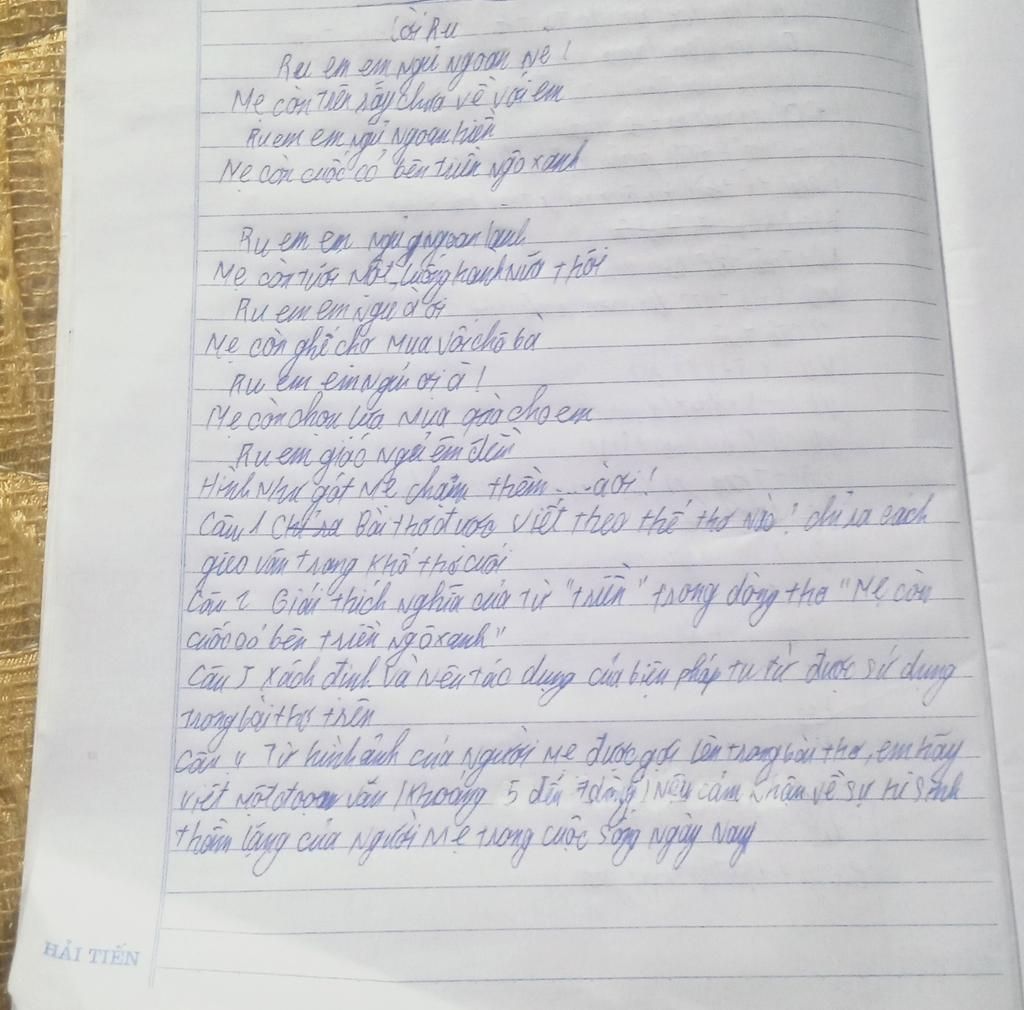 Lời Ru
Ru em em ngủ ngoan nè!
Mẹ còn trên rẫy chưa về với em
Ru em em ngủ ngoan hiền
Mẹ còn cuốc cỏ bên triền ngô xanh
Ru em em ngủ ngoan lành
Mẹ còn tưới một luống hanh nữa thôi
Ru em em ngủ à ơi
Mẹ còn ghé chợ mua vôi cho bà
Ru em em ngủ ơi à!
Mẹ còn chọn lựa mua quà cho em
Ru em giấc ngủ êm đềm
Hình như gót mẹ chạm thềm....à ơi!
Câu 1 Bài thơ được viết theo thể thơ nào! chỉ ra cách
gieo vần trong khổ thơ cuối
Câu 2 Giải thích nghĩa của từ "triền" trong dòng thơ "Mẹ còn
cuốc cỏ bên triền ngô xanh"
Câu 3 Xách định và nêu tác dụng của biện pháp tu từ được sử dụng
trong bài thơ trên
Câu 4 Từ hình ảnh của người mẹ được gợi lên trong bài thơ, em hãy
viết một đoạn văn (khoảng 5 đến 7 dòng) nêu cảm nhận về sự hi sinh
thầm lặng của người mẹ trong cuộc sống ngày nay
HẢI TIẾN